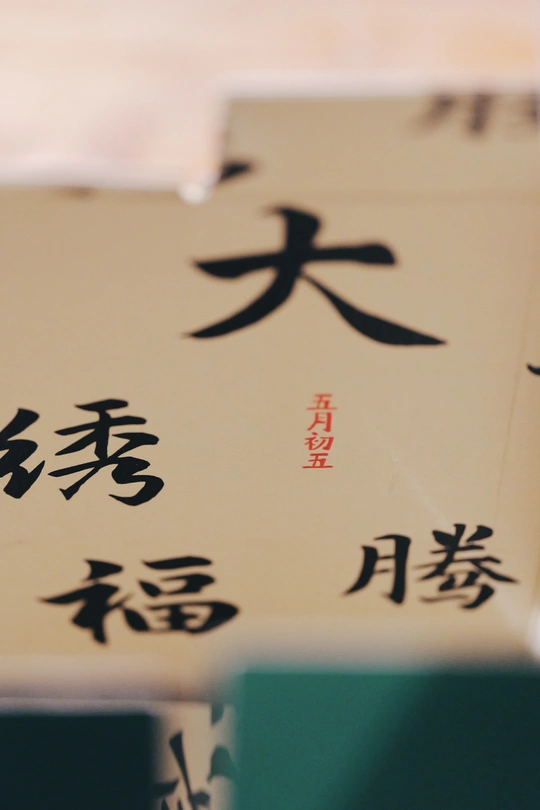 大
五月初五
绣
福
腾